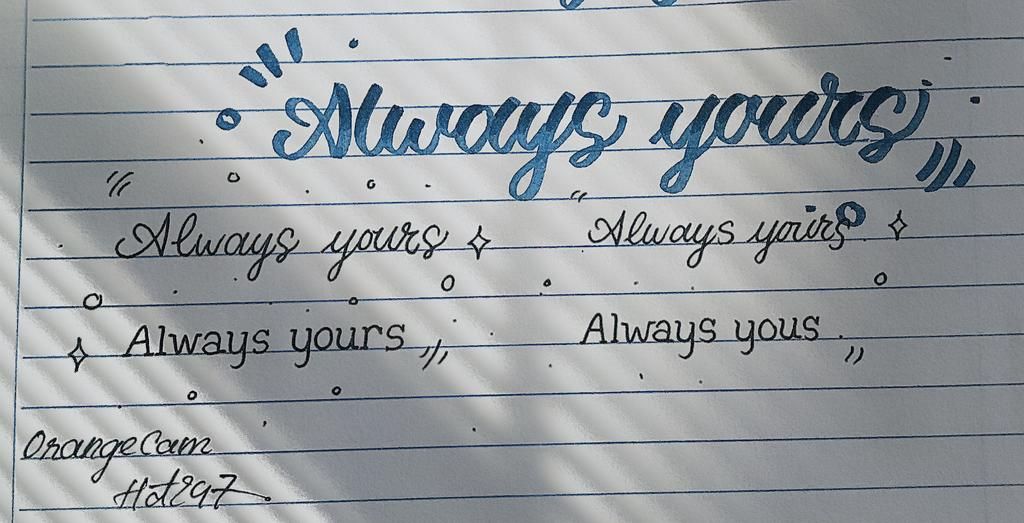 Always yours
Always yours Always yours
Always yours Always yous
OrangeCam
Hot297